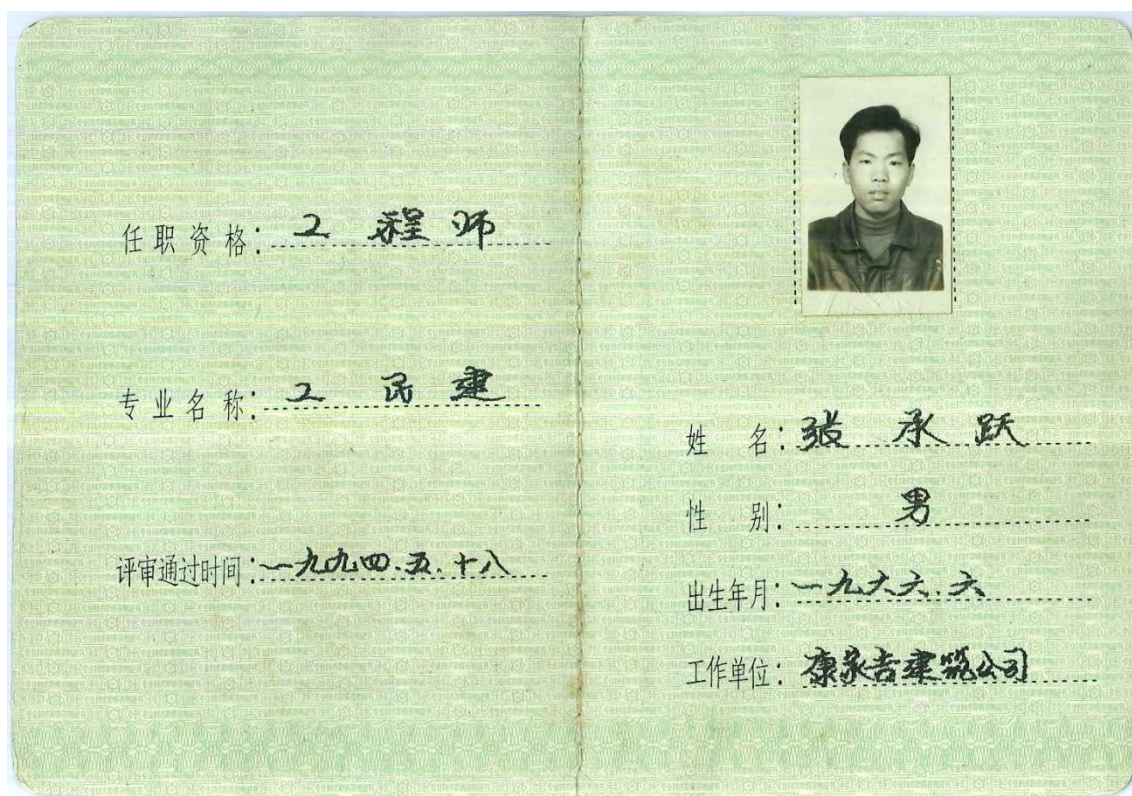 任职资格：工程师
专业名称：工民建
评审通过时间：一九九四.五.十八
姓名：张承跃
性别：男
出生年月：一九六六.六
工作单位：康家吉建筑公司